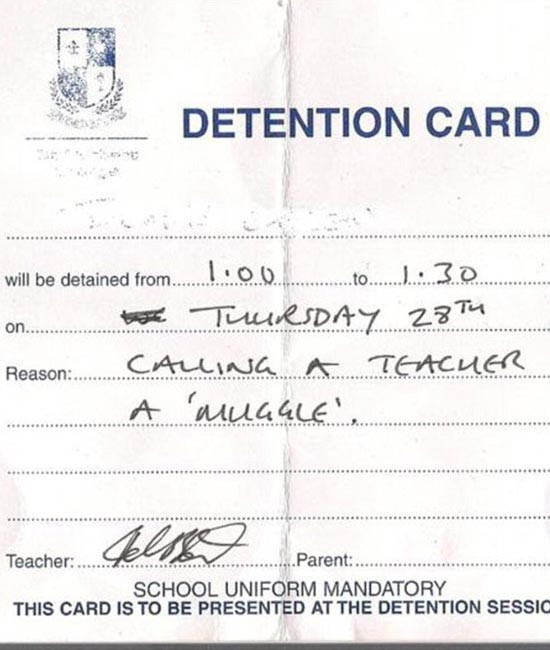 DETENTION CARD
will be detained from 1.00 to 1.30
on THURSDAY 28TH
Reason: CALLING A TEACHER
A 'MUGGLE'.
Teacher: Parent:
SCHOOL UNIFORM MANDATORY
THIS CARD IS TO BE PRESENTED AT THE DETENTION SESSIO